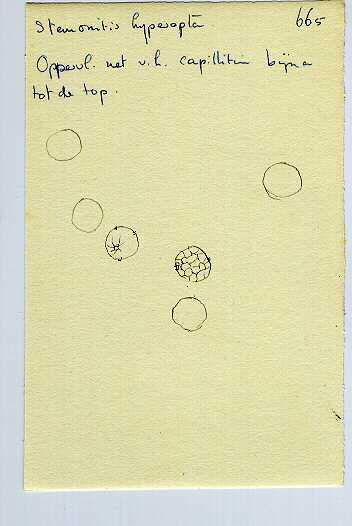 Stemonitis hyperopta 665
Oppervl. net v.h. capillitium bijna
tot de top.